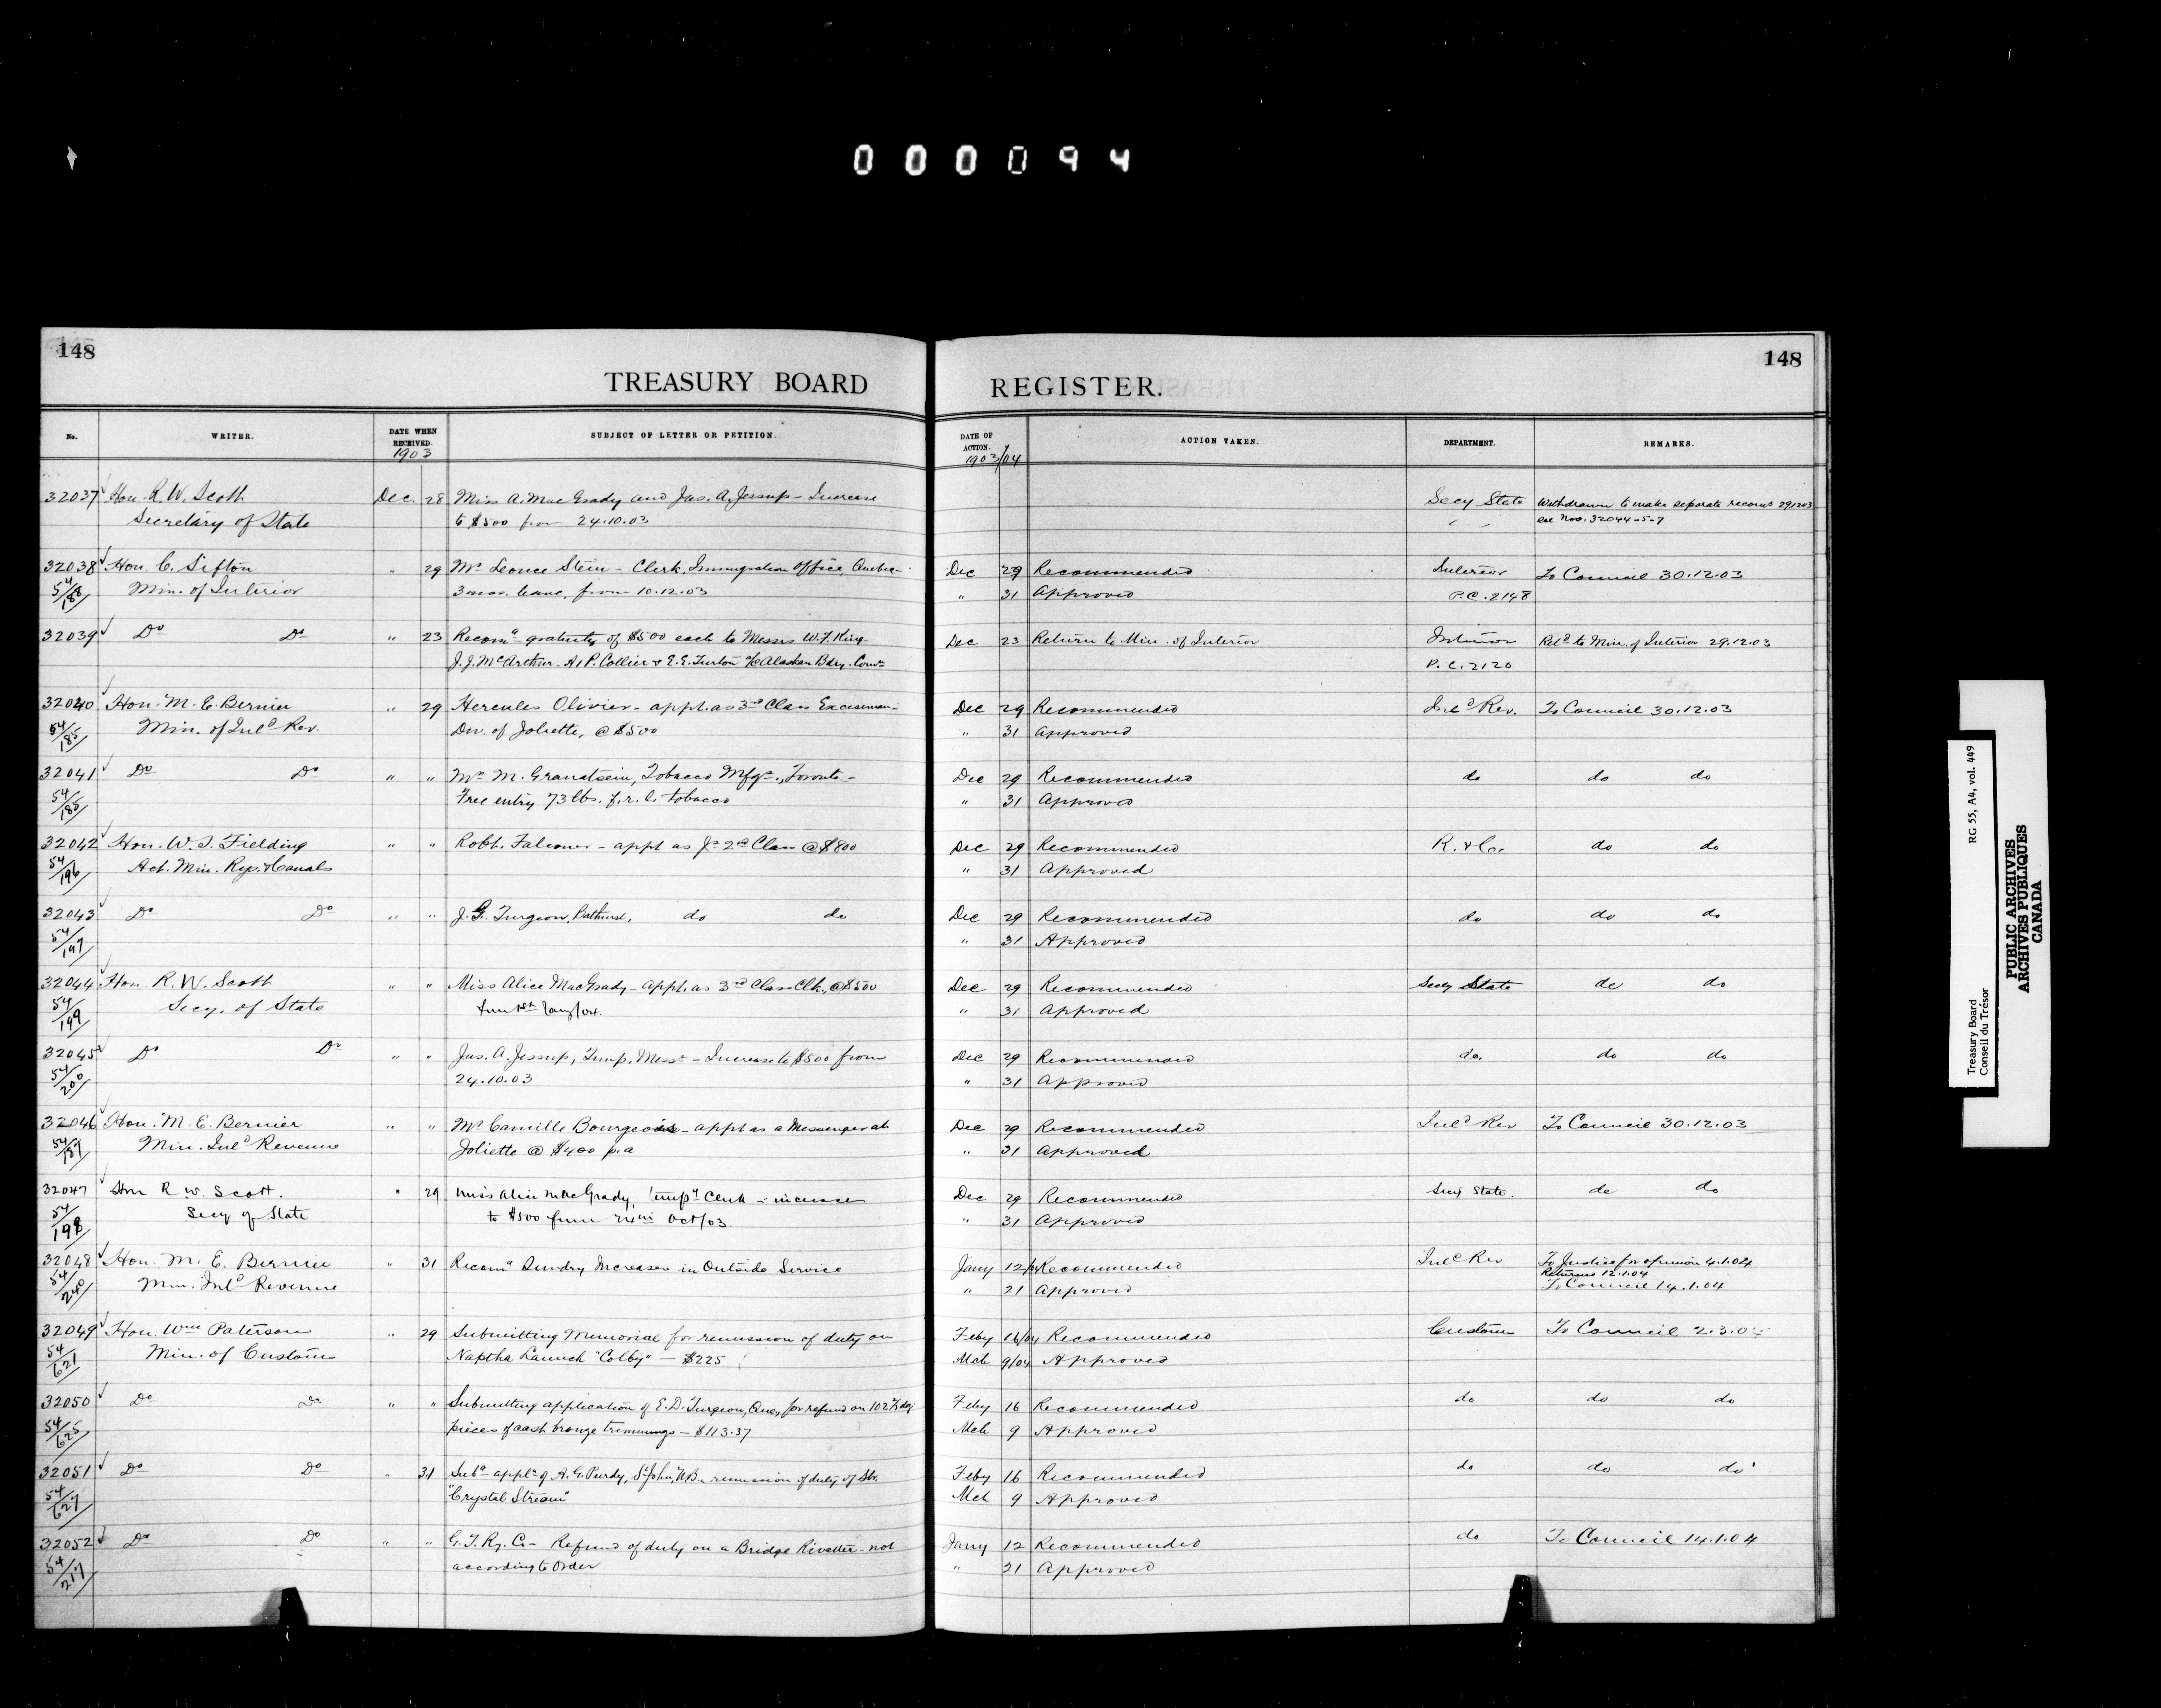 000094
148
148
TREASURY BOARD REGISTER.
No. WRITER. DATE WHEN RECEIVED. 1903 SUBJECT OF LETTER OR PETITION. DATE OF ACTION. 1903/04 ACTION TAKEN. DEPARTMENT. REMARKS.
32037 Hon. R. W. Scott Dec. 28 Miss A. MacGrady and Jas. A. Jessup - Increase Secy State Withdrawn to make separate recoms 29.12.03
Secretary of State to $500 from 24.10.03 " " see Nos. 32044-5-7
32038 Hon. C. Sifton " 29 Mr Leonce Stein - Clerk, Immigration Office, Quebec - Dec 29 Recommended Interior To Council 30.12.03
54/188 Min. of Interior 3 mos. leave, from 10.12.03 " 31 Approved P.C. 2148
32039 Do Do " 23 Recomg gratuity of $500 each to Messrs W. F. King - Dec 23 Return to Min. of Interior Interior Retd to Min. of Interior 29.12.03
J. J. McArthur - A. P. Collier & E. E. Turton Alaskan Bdry. Comn P.C. 2120
32040 Hon. M. E. Bernier " 29 Hercules Olivier - appt. as 3rd Class Exciseman - Dec 29 Recommended Inld Rev. To Council 30.12.03
54/185 Min. of Inld Rev. Div. of Joliette, @ $500 " 31 Approved
32041 Do Do " " Mr M. Granatstein, Tobacco Mfgr., Toronto - Dec 29 Recommended do do do
54/185 Free entry 73 lbs. f.r.l. tobacco " 31 Approved
32042 Hon. W. S. Fielding " " Robt. Falconer - appt as Jr 2nd Class @ $800 Dec 29 Recommended R. & C. do do
54/196 Act. Min. Rys. & Canals " 31 Approved
32043 Do Do " " J. G. Turgeon, Bathurst, do do Dec 29 Recommended do do do
54/197 " 31 Approved
32044 Hon. R. W. Scott " " Miss Alice MacGrady - appt. as 3rd Class Clk. @ $500 Dec 29 Recommended Secy State do do
54/199 Secy. of State from 1st Jany/04. " 31 Approved
32045 Do Do " " Jas. A. Jessup, Temp. Messr - Increase to $500 from Dec 29 Recommended do. do do
54/201 24.10.03 " 31 Approved
32046 Hon. M. E. Bernier " " Mr Camille Bourgeois - appt as a Messenger at Dec 29 Recommended Inld Rev To Council 30.12.03
54/187 Min. Inld Revenue Joliette @ $400 p.a " 31 Approved
32047 Hon R. W. Scott. " 29 Miss Alice MacGrady, tempy Clerk - increase Dec 29 Recommended Secy State. do do
54/198 Secy of State to $500 from 24th Oct/03. " 31 Approved
32048 Hon. M. E. Bernier " 31 Recomg Sundry Increases in Outside Service Jany 12/04 Recommended Inld Rev To Justice for opinion 4.1.04
Returned 12.1.04
Min. Inld Revenue " 21 Approved To Council 14.1.04
32049 Hon. Wm Paterson " 29 Submitting Memorial for remission of duty on Feby 16/04 Recommended Customs To Council 2.3.04
54/621 Min. of Customs Naptha Launch "Colby" - $225 Mch 9/04 Approved
32050 Do Do " " Submitting application of E. D. Turgeon, Que, for refund on 102 Feby 16 Recommended do do do
54/625 pieces of cash bronze trimmings - $113.37 Mch 9 Approved
32051 Do Do " 31 Subg appln of A. G. Purdy, St John, N.B. remission of duty of Str. Feby 16 Recommended do do do
54/627 "Crystal Stream" Mch 9 Approved
32052 Do Do " " G. T. Ry. Co - Refund of duty on a Bridge Rivetter - not Jany 12 Recommended do To Council 14.1.04
54/217 according to Order " 21 Approved
Treasury Board RG 55, A4, vol. 449
Conseil du Trésor
PUBLIC ARCHIVES
ARCHIVES PUBLIQUES
CANADA